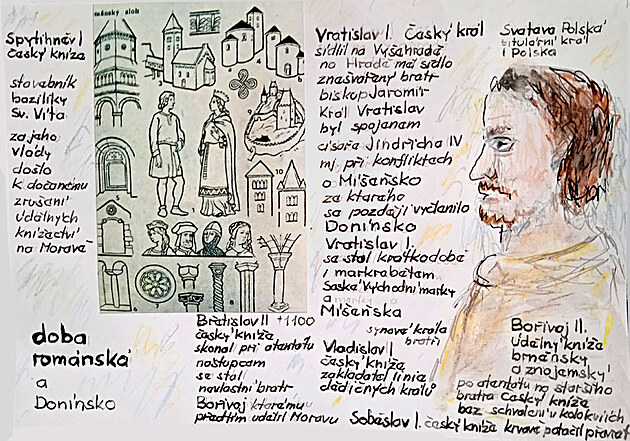 Spytihněv I
český kníže
stavebník
baziliky
Sv. Víta
za jeho
vlády
došlo
k dočasnému
zrušení
údělných
knížectví
na Moravě
románský sloh
Vratislav I. Český král
sídlil na Vyšehradě
na Hradě měl sídlo
znesvářený bratr
biskop Jaromír
Král Vratislav
byl spojenem
císaře Jindřicha IV
mj. při konfliktech
o Míšeňsko
za kterého
se později vyčlenilo
Donínsko
Vratislav I.
se stal krátkodobě
i markrabětem
Saské Východní marky
a
Míšeňska
Svatava Polská
titulární král
i Polska
doba
románská
a
Donínsko
Břetislav II +1100
český kníže
skonal při atentátu
nástupcem
se stal
nevlastní bratr
Bořivoj kterému
předtím udělil Moravu
synové krále
bratři
Vladislav I
český kníže
zakladatel linie
dědičných králů
Bořivoj II.
údělný kníže
brněnský
a znojemský
po atentátu na staršího
bratra český kníže
bez schválení v kolokviích
Soběslav I. český kníže krvavě potlačil převrat